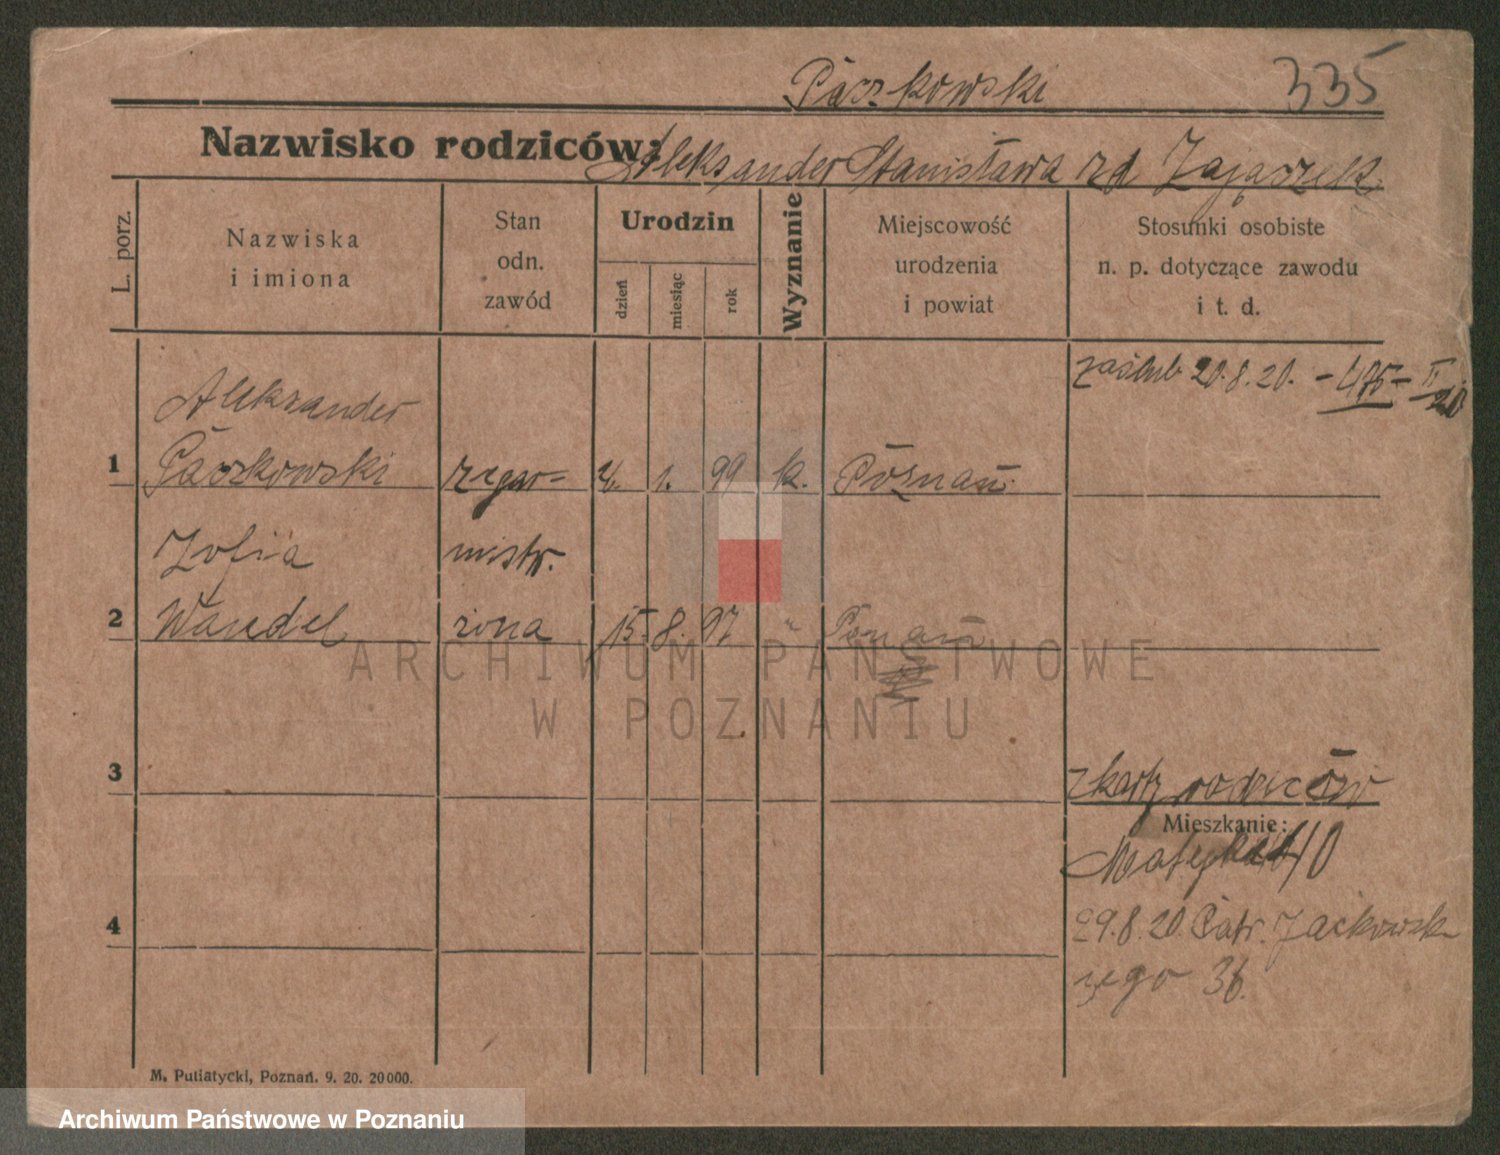 Paczkowski 335
Nazwisko rodziców: Aleksander Stanisława rd Zajączek
L. porz.
Nazwiska i imiona
Stan odn. zawód
Urodzin
dzień
miesiąc
rok
Wyznanie
Miejscowość urodzenia i powiat
Stosunki osobiste n. p. dotyczące zawodu i t. d.
zaślub 20.8.20. -475- II 20
Aleksander
1 Paczkowski zegar= 4. 1. 99 k. Poznań.
Zofia mistr.
2 Wandel żona 15. 8. 97. " Poznań
3 z karty rodziców
Mieszkanie:
Matejki 40
4 29.8.20. Patr. Jackowsk
iego 36.
M. Putiatycki, Poznań. 9. 20. 20000.
ARCHIWUM PAŃSTWOWE
W POZNANIU
Archiwum Państwowe w Poznaniu